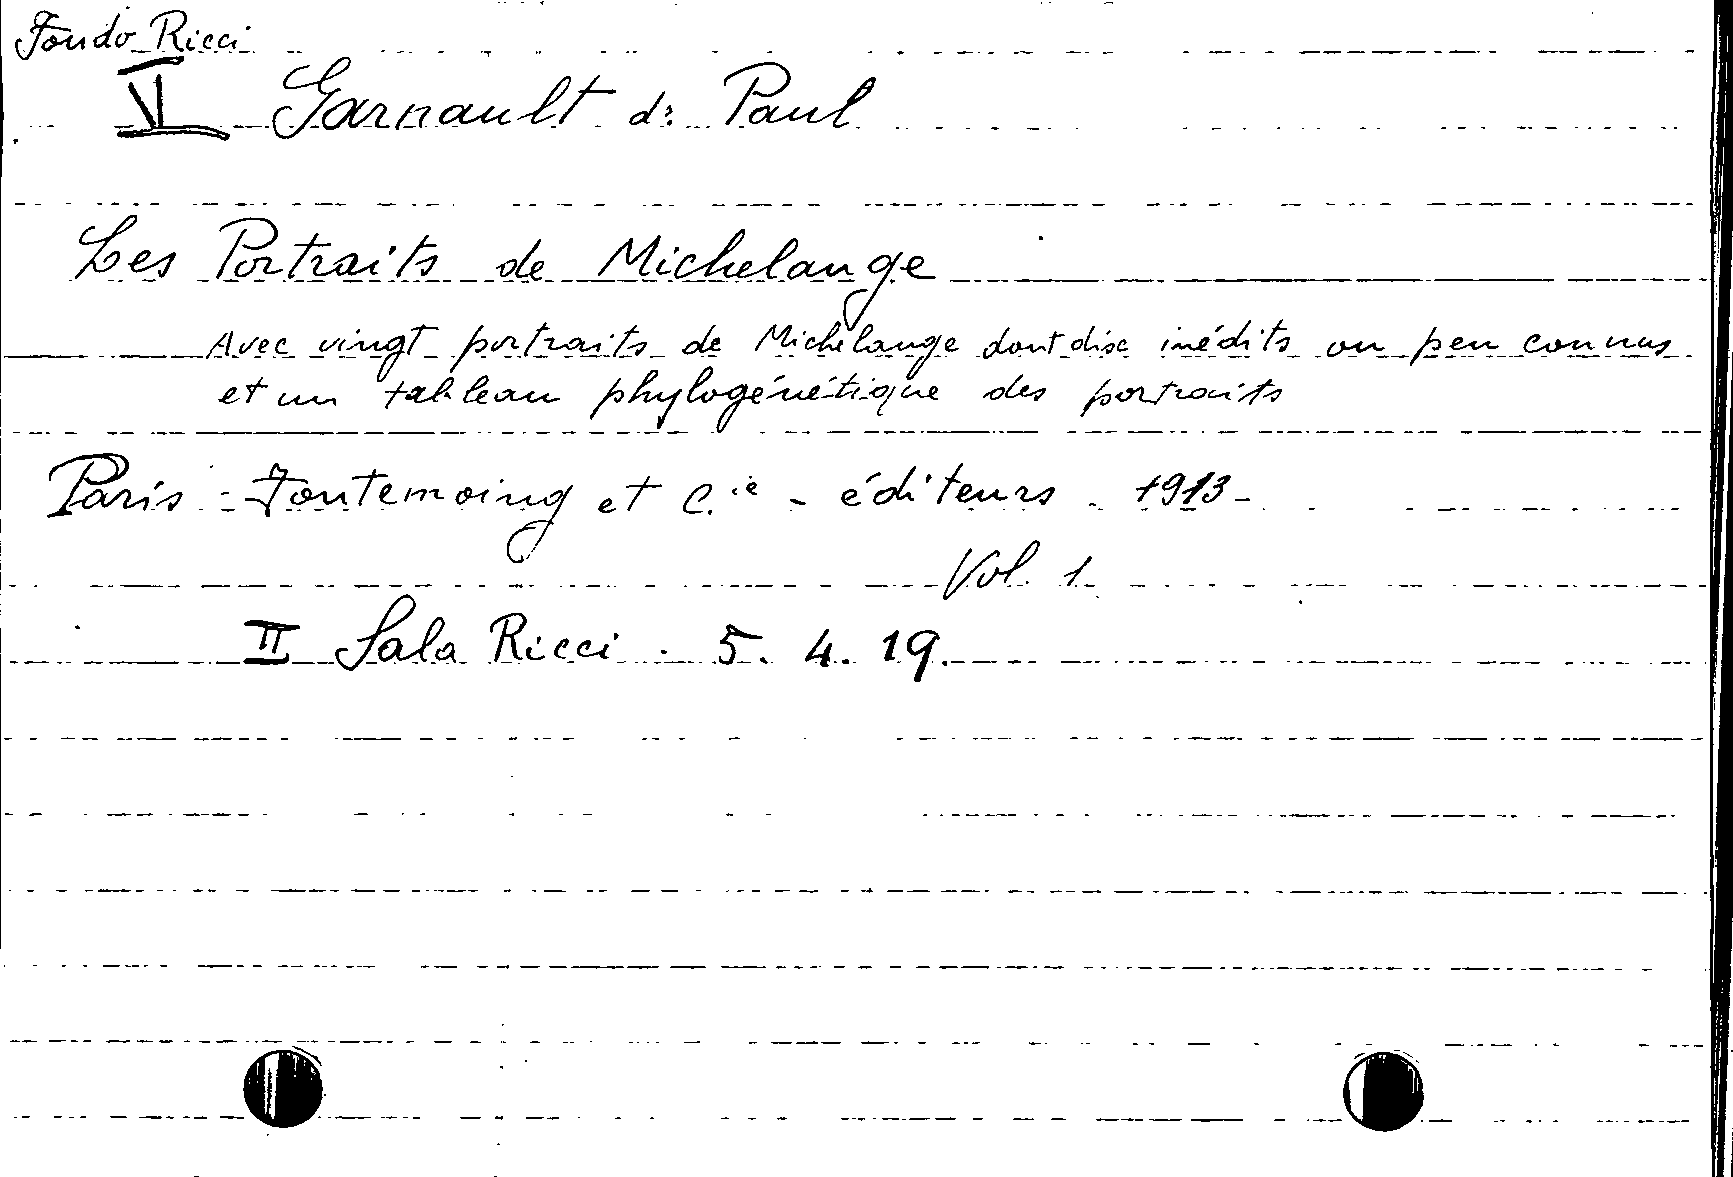 Fondo Ricci
VI Garnault dr Paul
Les Portraits de Michelange
Avec vingt portraits de Michelange dont disc inédits ou peu connus
et un tableau phylogénétique des portraits
Paris - Fontemoing et C.ie - éditeurs - 1913 -
Vol. 1
II Sala Ricci . 5. 4. 19.